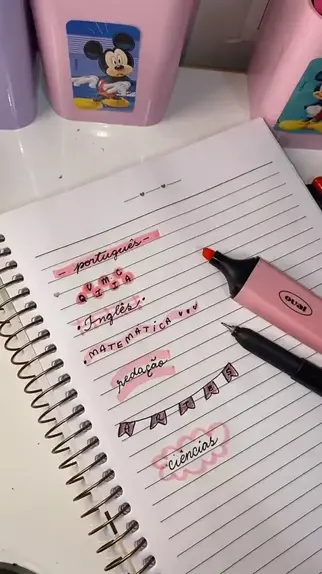 - português -
QUIMICA
• Inglês •
• MATEMÁTICA ♥♥♥
redação
ARTES
ciências
oval